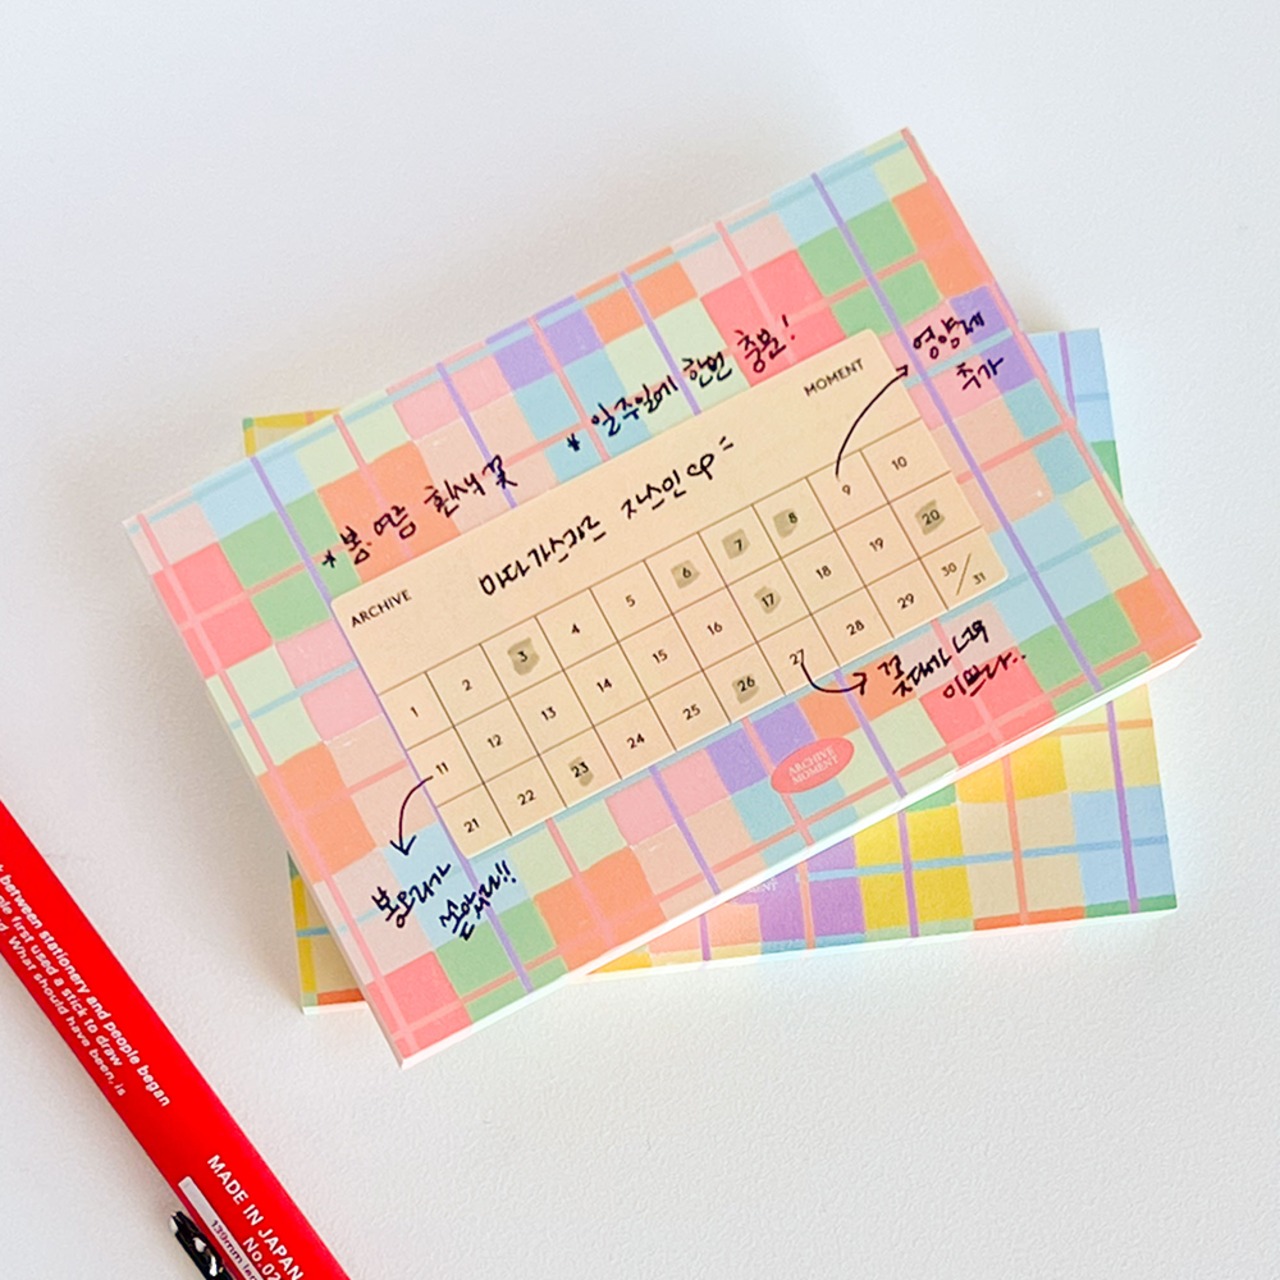 * 봄. 여름 흰색 꽃
* 일주일에 한번 충분!
ARCHIVE
MOMENT
마다가스다르 자스민
1 2 3 4 5 6 7 8 9 10
11 12 13 14 15 16 17 18 19 20
21 22 23 24 25 26 27 28 29 30/31
영양제
추가
봉우리가
솟았다!!
꽃대가 너무
이쁘다..
ARCHIVE
MOMENT
between stationery and people began
first used a stick to draw
What should have been, is
MADE IN JAPAN
139mm